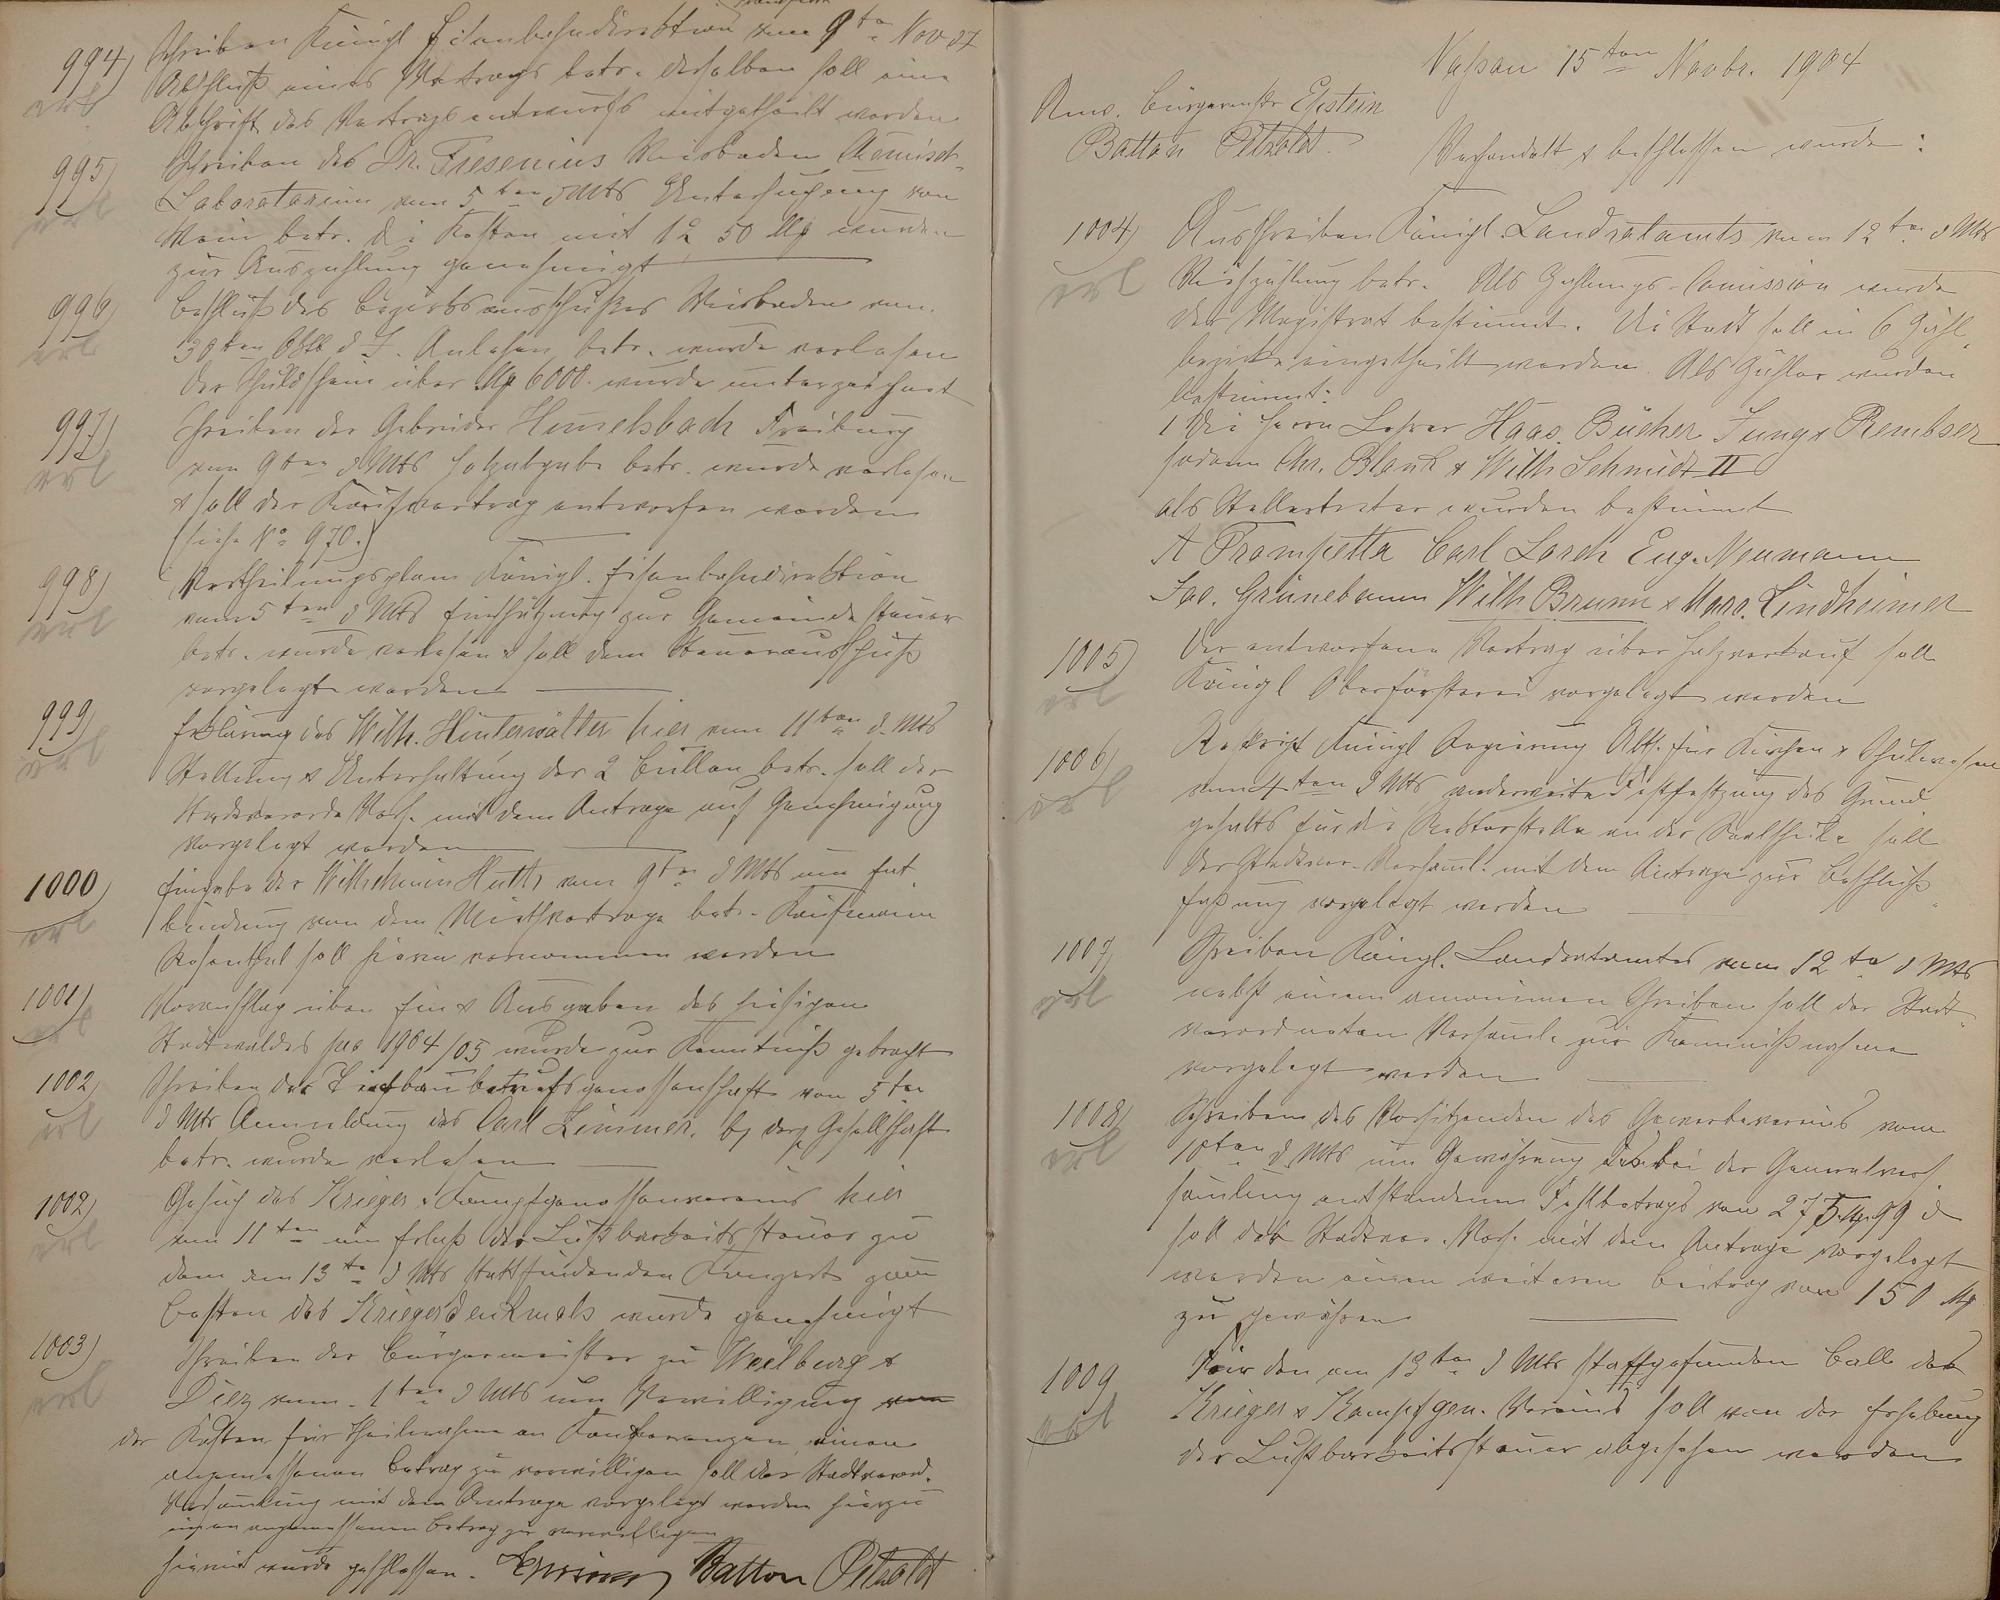 994) Schreiben Königl Eisenbahndirektion vom 9ten Nov 04
erl
Abschluß eines Vertrags betr. derselben soll eine
Abschrift des Vertragsentwurfs mitgetheilt werden
995) Schreiben des Dr. Fresenius Wiesbaden Chemisch
erl
Laboratorium vom 5ten d Mts Untersuchung von
Wein betr. Die Kosten mit 12,50 M wurden
zur Auszahlung genehmigt
996) Beschluß des Bezirksausschußes Wiesbaden vom
erl
30ten Oktb d J. Anlehen betr. wurde verlesen
der Schuldschein über M 6000. wurde unterzeichnet
997) Schreiben der Gebrüder Himmelsbach Freiburg
erl
vom 9ten d Mts Holzabgabe betr. wurde verlesen
& soll der Kaufvertrag entworfen werden
(siehe No 970.)
998) Vertheilungsplan Königl. Eisenbahndirektion
erl
vom 5ten d Mts Einschätzung zur Gemeindesteuer
betr. wurde verlesen & soll dem Steuerausschuß
vorgelegt werden
999) Erklärung des Wilh. Hinterwälter hier vom 11ten d. Mts
erl
Stellung & Unterhaltung der 2 Bullen betr. soll der
Stadtverord. Vers. mit dem Antrage auf Genehmigung
vorgelegt werden
1000) Eingabe der Wilhelmine Huth vom 9ten d Mts um Ent
erl
bindung von dem Miethvertrage betr. Kaufmann
Rosenthal soll hierin vernommen werden
1001) Voranschlag über Ein & Ausgaben des hiesigen
erl
Stadtwaldes pro 1904/05 wurde zur Kenntniß gebracht
1002) Schreiben der Tiefbauberufsgenossenschaft vom 5ten
erl
d Mts Anmeldung des Carl Zimmer, bei der Gesellschaft
betr. wurde verlesen
1002) Gesuch des Krieger & Kampfgenossenvereins hier
erl
vom 11ten um Erlaß der Lustbarkeitssteuer zu
dem den 13te d Mts stattfindenden Konzert zum
Besten des Kriegerdenkmals wurde genehmigt
1003) Schreiben der Bürgermeister zu Weilburg &
erl
Diez vom 1ten d Mts um Bewilligung
der Kosten für Theilnahme an Konferenzen einen
angemessenen Betrag zu verwilligen soll der Stadtverord.
Versammlung mit dem Antrage vorgelegt werden hierzu
einen angemessenen Betrag zu verwilligen
Hiermit wurde geschlossen. Batton Petzoldt
Nassau 15ten Novbr. 1904
Anw. Bürgermstr
Batton Petzoldt.
Verhandelt & beschlossen wurde:
1004) Ausschreiben Königl. Landratamts vom 12ten d Mts
erl
Viehzählung betr. Als Zählungs-Comission wurde
der Magistrat bestimmt. Die Stadt soll in 6 Zähl
bezirke eingetheilt werden. Als Zähler wurden
bestimmt:
1 Die Herrn Lehrer Haas. Bücher Jung & Rembser
sodann Chr. Blank & Wilh Schmidt II
als Stellvertreter wurden bestimmt
A Trompetta Carl Lorch Eug. Neumann
Jac. Grünebaum Wilh Brunn & Marx. Lindheimer
1005) Der entworfene Vertrag über Holzverkauf soll
erl
Königl Oberförsterei vorgelegt werden
1006) Reskript Königl Regierung Abth. für Kirchen & Schulwesen
erl
vom 4ten d Mts anderweite Festsetzung des Grund
gehalts für die Rektorstelle an der Realschule soll
der Stadtver. Versaml. mit dem Antrage zur Beschluß
faßung vorgelegt werden
1007) Schreiben Königl. Landratamtes vom 12te d Mts
erl
nebst einem anonimen Schreiben soll der Stadt
verordneten Versaml. zur Kenntnißnahme
vorgelegt werden
1008) Schreiben des Vorsitzenden des Gewerbevereins vom
erl
10ten d. Mts um Gewährung des bei der Generalver
samlung entstandenen Fehlbetrags von 275 M 99 d
soll der Stadtver. Vers. mit dem Antrage vorgelegt
werden einen weiteren Beitrag von 150 M
zu gewähren
1009 Für den am 13ten d Mts stattgefundenen Ball des
erl
Krieger & Kampfgen. Vereins soll von der Erhebung
der Lustbarkeitssteuer abgesehen werden